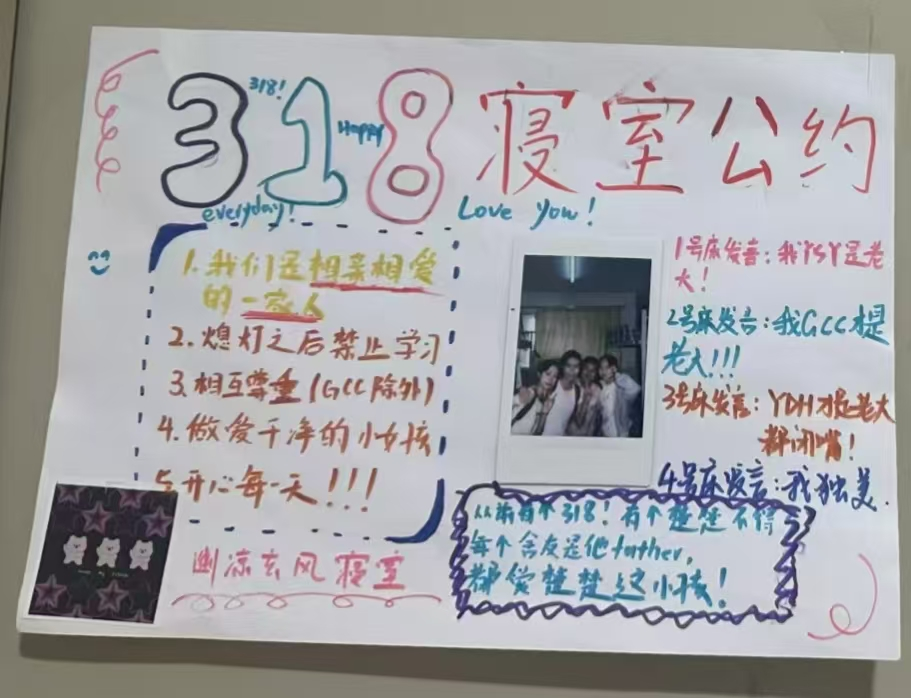 318 寝室公约
318!
Happy
everyday!
Love you!
1.我们是相亲相爱
的一家人
2.熄灯之后禁止学习
3.相互尊重(GCC除外)
4.做爱干净的小女孩
5.开心每一天!!!
幽凉玄风寝室
1号床发言:我YSY是老
大!
2号床发言:我GCC才是
老大!!!
3号床发言:YDH才是老大
都闭嘴!
4号床发言:我独美.
从前有个318!有个楚楚不得
每个舍友是他father,
都管楚楚这小孩!